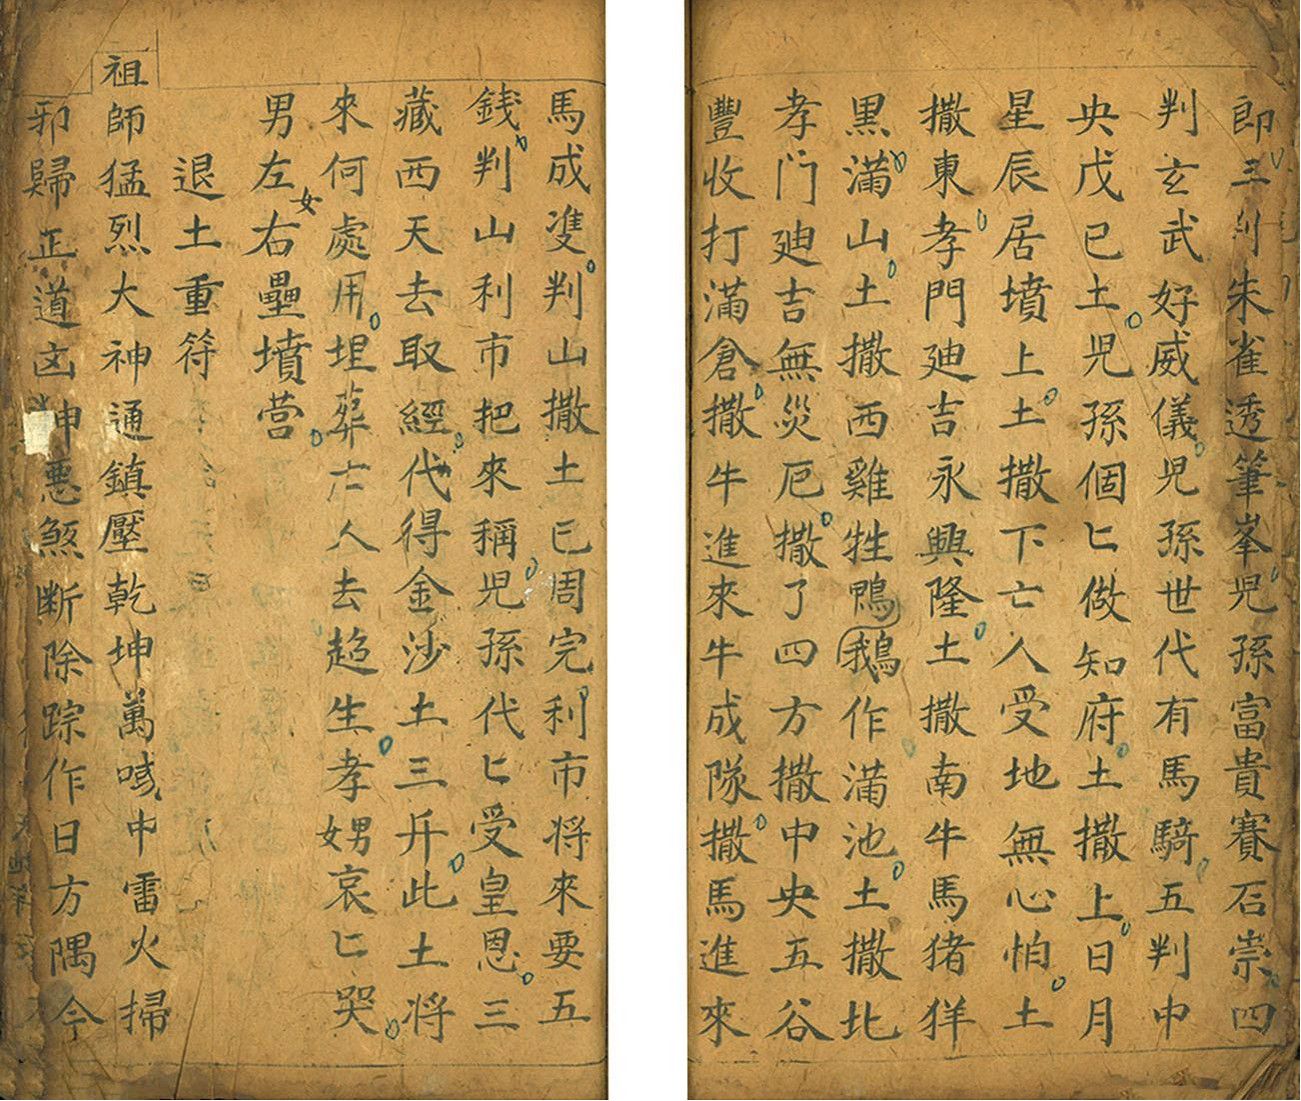 郎三判朱雀透筆峯児孫富貴賽石崇四
判玄武好威儀児孫世代有馬騎五判中
央戊巳土児孫個匕做知府土撒上日月
星辰居墳上土撒下亡人受地無心怕土
撒東孝門廸吉永興隆土撒南牛馬猪羊
黒滿山土撒西雞牲鴨鵝作滿池土撒北
孝門廸吉無災厄撒了四方撒中央五谷
豐收打滿倉撒牛進來牛成隊撒馬進來
馬成隻判山撒土已周完利市将來要五
錢判山利市把來稱児孫代匕受皇恩三
藏西天去取經代得金沙土三斤此土将
來何處用埋葬亡人去趋生孝男哀匕哭
男左女右壘墳营
退土重符
祖師猛烈大神通鎮壓乾坤萬喊中雷火掃
邪歸正道凶神悪煞断除踪作日方隅今